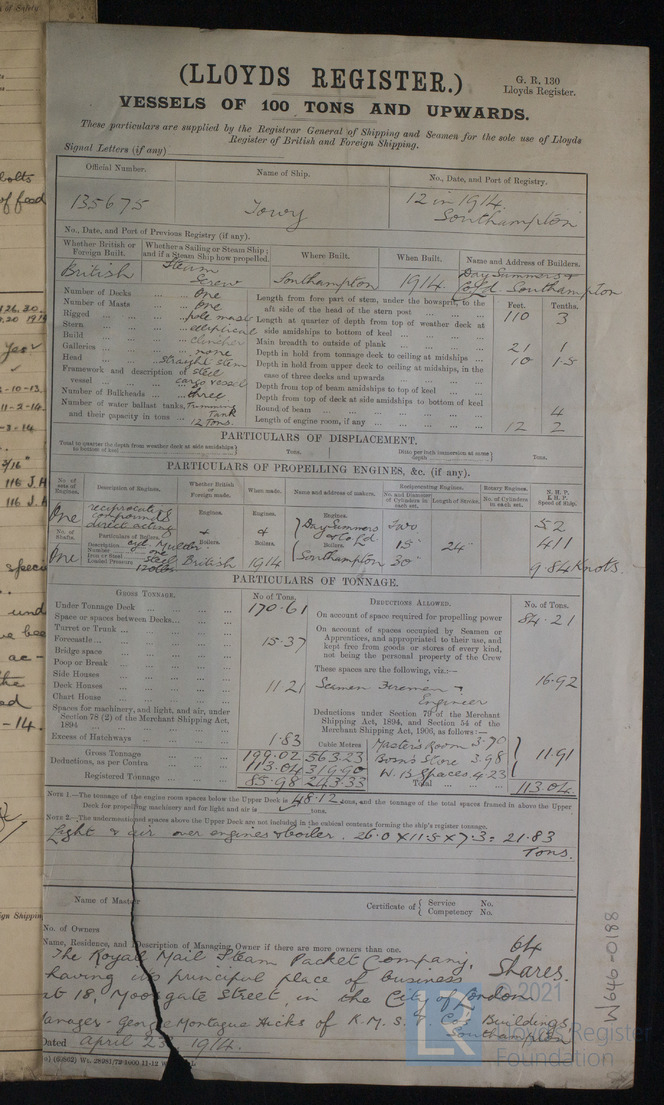 (LLOYDS REGISTER.)
G. R. 130
Lloyds Register.
VESSELS OF 100 TONS AND UPWARDS.
These particulars are supplied by the Registrar General of Shipping and Seamen for the sole use of Lloyds
Register of British and Foreign Shipping.
Signal Letters (if any)
Official Number. Name of Ship. No., Date, and Port of Registry.
135675 Towy 12 in 1914
Southampton
No., Date, and Port of Previous Registry (if any).
Whether British or Foreign Built. Whether a Sailing or Steam Ship; and if a Steam Ship how propelled. Where Built. When Built. Name and Address of Builders.
British Steam Screw Southampton 1914 Day Summers & Co Ld Southampton
Number of Decks ... One
Number of Masts ... One
Rigged ... pole mast
Stern ... elliptical
Build ... clincher
Galleries ... none
Head ... Straight stem
Framework and description of vessel ... steel cargo vessel
Number of Bulkheads ... three
Number of water ballast tanks, and their capacity in tons ... Trimming Tank 12 Tons.
Feet. Tenths.
Length from fore part of stem, under the bowsprit, to the aft side of the head of the stern post 110 3
Length at quarter of depth from top of weather deck at side amidships to bottom of keel
Main breadth to outside of plank 21 1
Depth in hold from tonnage deck to ceiling at midships 10 1·5
Depth in hold from upper deck to ceiling at midships, in the case of three decks and upwards
Depth from top of beam amidships to top of keel
Depth from top of deck at side amidships to bottom of keel
Round of beam 4
Length of engine room, if any 12 2
PARTICULARS OF DISPLACEMENT.
Total to quarter the depth from weather deck at side amidships to bottom of keel Tons. Ditto per inch immersion at same depth Tons.
PARTICULARS OF PROPELLING ENGINES, &c. (if any).
No. of sets of Engines. Description of Engines. Whether British or Foreign made. When made. Name and address of makers. Reciprocating Engines. No. and Diameter of Cylinders in each set. Length of Stroke. Rotary Engines. No. of Cylinders in each set. N. H. P. I. H. P. Speed of Ship.
One reciprocating compound direct acting
Engines. Engines. Engines.
Day Summers & Co Ld Two 52
No. of Shafts. Particulars of Boilers. Boilers. Boilers. Boilers. 15" 24" 411
Description
Number one
Iron or Steel steel
Loaded Pressure
One British 1914 Southampton 30" 9·84 Knots.
PARTICULARS OF TONNAGE.
GROSS TONNAGE. No of Tons. DEDUCTIONS ALLOWED. No. of Tons.
Under Tonnage Deck 170·61
Space or spaces between Decks
Turret or Trunk
Forecastle 15·37
Bridge space
Poop or Break
Side Houses
Deck Houses 11·21
Chart House
Spaces for machinery, and light, and air, under Section 78 (2) of the Merchant Shipping Act, 1894
Excess of Hatchways 1·83
Gross Tonnage 199·02 563·23
Deductions, as per Contra 113·04 319·90
Registered Tonnage 85·98 243·33
Cubic Metres
On account of space required for propelling power 84·21
On account of spaces occupied by Seamen or Apprentices, and appropriated to their use, and kept free from goods or stores of every kind, not being the personal property of the Crew
These spaces are the following, viz.:— 16·92
Seamen Firemen & Engineer
Deductions under Section 79 of the Merchant Shipping Act, 1894, and Section 54 of the Merchant Shipping Act, 1906, as follows:—
Master's Room 3·70
Bosn's Store 3·98 11·91
W. B. Spaces 4·23
Total 113·04
NOTE 1.—The tonnage of the engine room spaces below the Upper Deck is 48·12 tons, and the tonnage of the total spaces framed in above the Upper
Deck for propelling machinery and for light and air is tons.
NOTE 2.—The undermentioned spaces above the Upper Deck are not included in the cubical contents forming the ship's register tonnage.
Light & air over engines & boiler. 26·0 x 11·5 x 7·3 = 21·83
Tons.
Name of Master Certificate of Service No.
Competency No.
No. of Owners
Name, Residence, and Description of Managing Owner if there are more owners than one. 64
The Royal Mail Steam Packet Company, Shares.
having its principal place of business
at 18, Moorgate Street, in the City of London
Manager - George Montague Hicks of R. M. S. P. Co's Buildings,
Southampton
Dated April 23 1914.
M949-0188
© 2021
LR
Lloyd's Register
Foundation